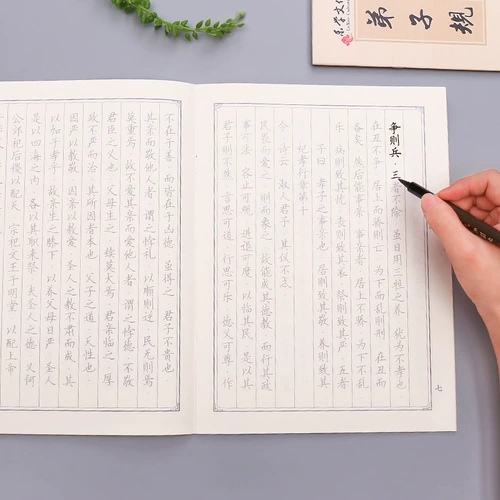 弟子规
争则兵·三者不除 虽日用三牲之养 犹为不孝也·
在丑不争·居上而骄则亡 为下而乱则刑 在丑而
备矣 然后能事亲·事亲者 居上不骄 为下不乱
乐 病则致其忧 丧则致其哀 祭则致其严 五者
子曰 孝子之事亲也 居则致其敬 养则致其
纪孝行章第十
令·诗云 淑人君子 其仪不忒·
民畏而爱之 则而象之·故能成其德教 而行其政
事可法 容止可观 进退可度·以临其民 是以其
君子则不然 言思可道 行思可乐 德义可尊·作
七
不在于善 而皆在于凶德 虽得之 君子不贵也
其亲而敬他人者 谓之悖礼·以顺则逆 民无则焉·
莫重焉·故不爱其亲而爱他人者 谓之悖德 不敬
君臣之义也·父母生之 续莫大焉·君亲临之 厚
政不严而治 其所因者本也·父子之道 天性也·
因严以教敬 因亲以教爱·圣人之教不肃而成·其
以加于孝乎·故亲生之膝下 以养父母日严·圣人
是以四海之内 各以其职来祭·夫圣人之德 又何
公郊祀后稷以配天 宗祀文王于明堂 以配上帝